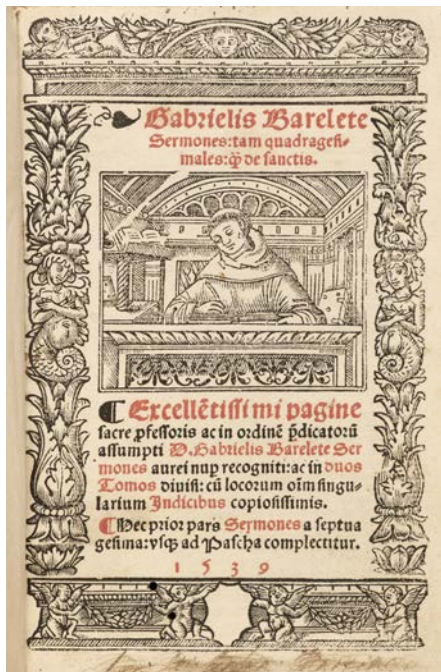 Gabrielis Barelete
Sermones: tam quadragesi-
males: q̄ꝫ de sanctis.
¶ Excellētissimi pagine
sacre ꝓfessoris ac in ordinē p̄dicatorū
assumpti D. Gabrielis Barelete Ser
mones aurei nup recogniti: ac in duos
Tomos divisi: cū locorum oīm singu-
larium Indicibus copiosissimis.
¶ Hec prior pars Sermones a septua
gesima: vsqꝫ ad Pascha complectitur.
1 5 3 9